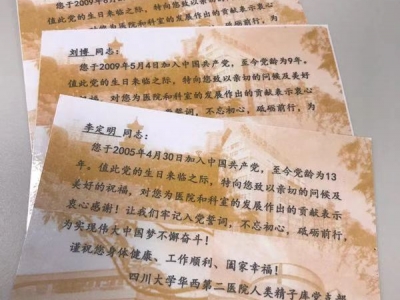 您于2009年6月2
年。值此党的生日来临之际，特
刘博 同志：
您于2009年5月4日加入中国共产党，至今党龄为9年。
值此党的生日来临之际，特向您致以亲切的问候及美好
祝福，对您为医院和科室的发展作出的贡献表示衷心
誓词，不忘初心，砥砺前行，为
李定明 同志：
您于2005年4月30日加入中国共产党，至今党龄为13
年。值此党的生日来临之际，特向您致以亲切的问候及
美好的祝福，对您为医院和科室的发展作出的贡献表示
衷心感谢！让我们牢记入党誓词，不忘初心，砥砺前行，
为实现伟大中国梦不懈奋斗！
谨祝您身体健康、工作顺利、阖家幸福！
四川大学华西第二医院人类精子库党支部